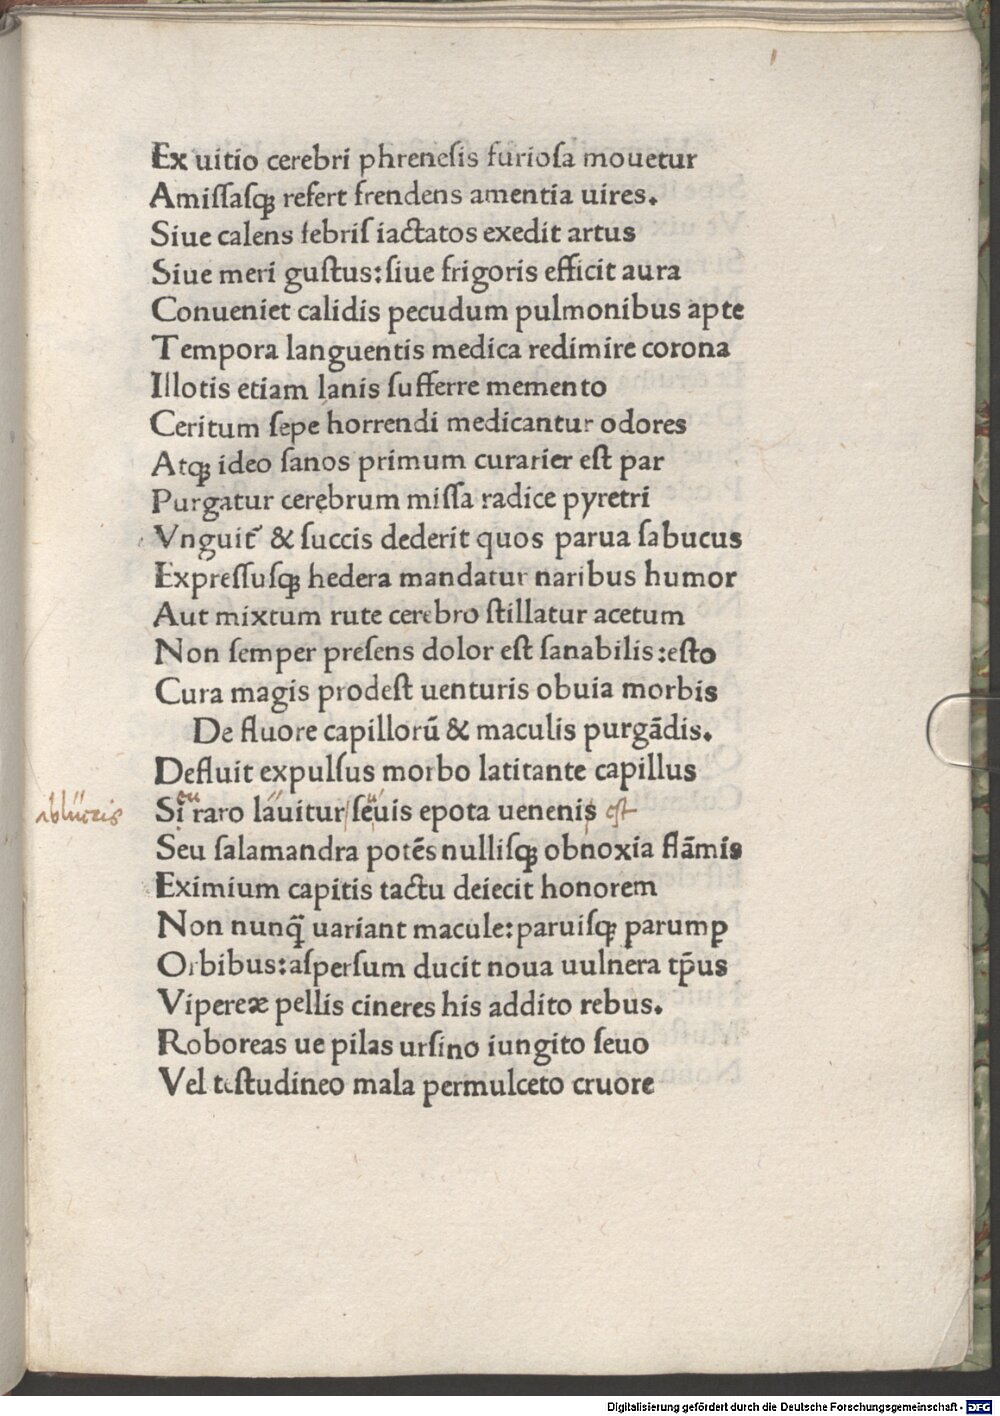 Ex uitio cerebri phreneſis furioſa mouetur
Amiſſaſqꝫ refert frendens amentia uires.
Siue calens febriſ iactatos exedit artus
Siue meri guſtus: ſiue frigoris efficit aura
Conueniet calidis pecudum pulmonibus apte
Tempora languentis medica redimire corona
Illotis etiam lanis ſufferre memento
Ceritum ſepe horrendi medicantur odores
Atqꝫ ideo ſanos primum curarier eſt par
Purgatur cerebrum miſſa radice pyretri
Vnguit᷑ & ſuccis dederit quos parua ſabucus
Expreſſuſqꝫ hedera mandatur naribus humor
Aut mixtum rute cerebro ſtillatur acetum
Non ſemper preſens dolor eſt ſanabilis: eſto
Cura magis prodeſt uenturis obuia morbis
De fluore capillorū & maculis purgādis.
Defluit expulſus morbo latitante capillus
Si raro lauitur / ſeuis epota uenenis eſt
Seu ſalamandra potēs nulliſqꝫ obnoxia flāmis
Eximium capitis tactu deiecit honorem
Non nunq̄ uariant macule: paruiſqꝫ parumꝑ
Orbibus: aſperſum ducit noua uulnera tp̄us
Vipereæ pellis cineres his addito rebus.
Roboreas ue pilas urſino iungito ſeuo
Vel teſtudineo mala permulceto cruore
Digitalisierung gefördert durch die Deutsche Forschungsgemeinschaft - DFG